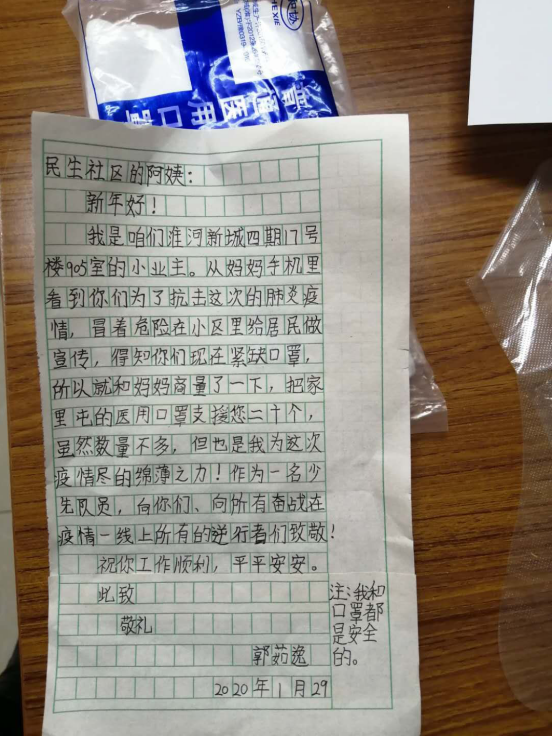 普通医用口罩
民生社区的阿姨：
新年好！
我是咱们淮河新城四期17号
楼905室的小业主。从妈妈手机里
看到你们为了抗击这次的肺炎疫
情，冒着危险在小区里给居民做
宣传，得知你们现在紧缺口罩，
所以就和妈妈商量了一下，把家
里屯的医用口罩支援您二十个，
虽然数量不多，但也是我为这次
疫情尽的绵薄之力！作为一名少
先队员，向你们、向所有奋战在
疫情一线上所有的逆行者们致敬！
祝你工作顺利，平平安安。
此致
敬礼
郭茹逸
2020年1月29
注：我和
口罩都
是安全
的。